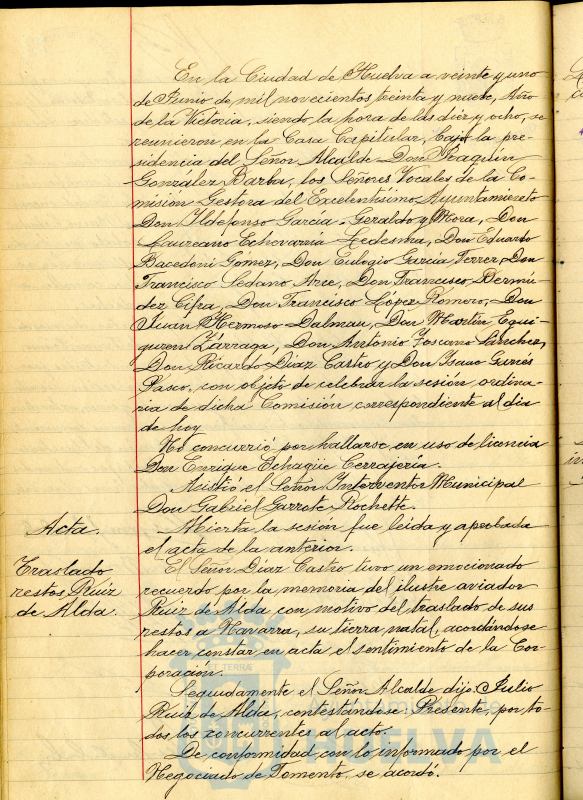 En la Ciudad de Huelva a veinte y uno
de Junio de mil novecientos treinta y nueve, Año
de la Victoria, siendo la hora de las diez y ocho, se
reunieron en la Casa Capitular, bajo la pre-
sidencia del Señor Alcalde Don Joaquín
González Barba, los Señores Vocales de la Co-
misión Gestora del Excelentísimo Ayuntamiento
Don Ildefonso García-Geraldo y Mora, Don
Laureano Echevarría Ledesma, Don Eduardo
Bacedoni Gómez, Don Eulogio García Ferrer, Don
Francisco Sedano Arce, Don Francisco Bermú-
dez Cifra, Don Francisco López Romero, Don
Juan Hermoso Dalmau, Don Martín Equi-
guren Zárraga, Don Antonio Toscano Sánchez,
Don Ricardo Díaz Castro y Don Isaac Garcés
Pasco, con objeto de celebrar la sesión ordina-
ria de dicha Comisión correspondiente al día
de hoy
No concurrió por hallarse en uso de licencia
Don Enrique Echagüe Cerrajería.
Asistió el Señor Interventor Municipal
Don Gabriel Garrote Rochette.
Acta.
Abierta la sesión fue leída y aprobada
el acta de la anterior.
Traslado
restos Ruiz
de Alda.
El Señor Díaz Castro tuvo un emocionado
recuerdo por la memoria del ilustre aviador
Ruiz de Alda, con motivo del traslado de sus
restos a Navarra, su tierra natal, acordándose
hacer constar en acta el sentimiento de la Cor-
poración.
Seguidamente el Señor Alcalde dijo: Julio
Ruiz de Alda, contestándose: Presente, por to-
dos los concurrentes al acto.
De conformidad con lo informado por el
Negociado de Fomento, se acordó.
ET TERRAE
Ayuntamiento de
HUELVA